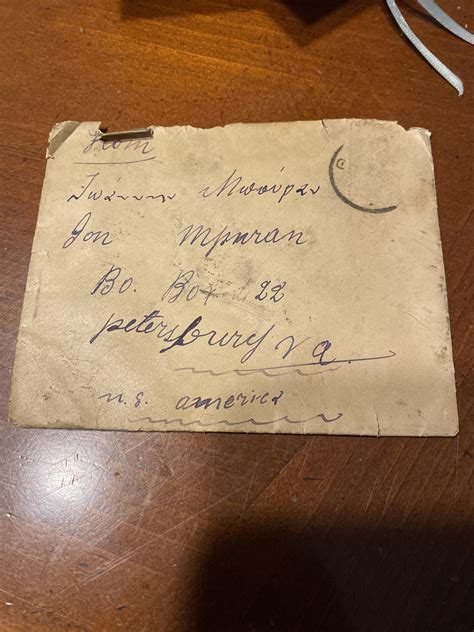 From
Ἰωάννη Μπούραν
Jon Mpuran
Bo. Box 22
petersburg Va.
u.s. america